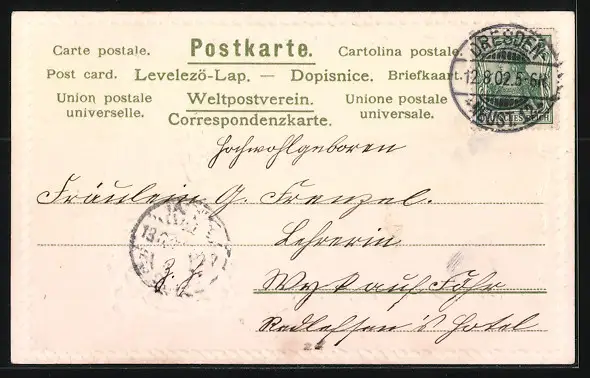 Carte postale. Postkarte. Cartolina postale.
Post card. Levelező-Lap. — Dopisnice. Briefkaart.
Union postale universelle. Weltpostverein. Unione postale universale.
Correspondenzkarte.
DRESDEN-
12.8.02.5-6N
NEUST.
Hochwohlgeboren
Fräulein G. Frenzel.
Lehrerin
z. Z. Wyk auf Föhr
Hotel